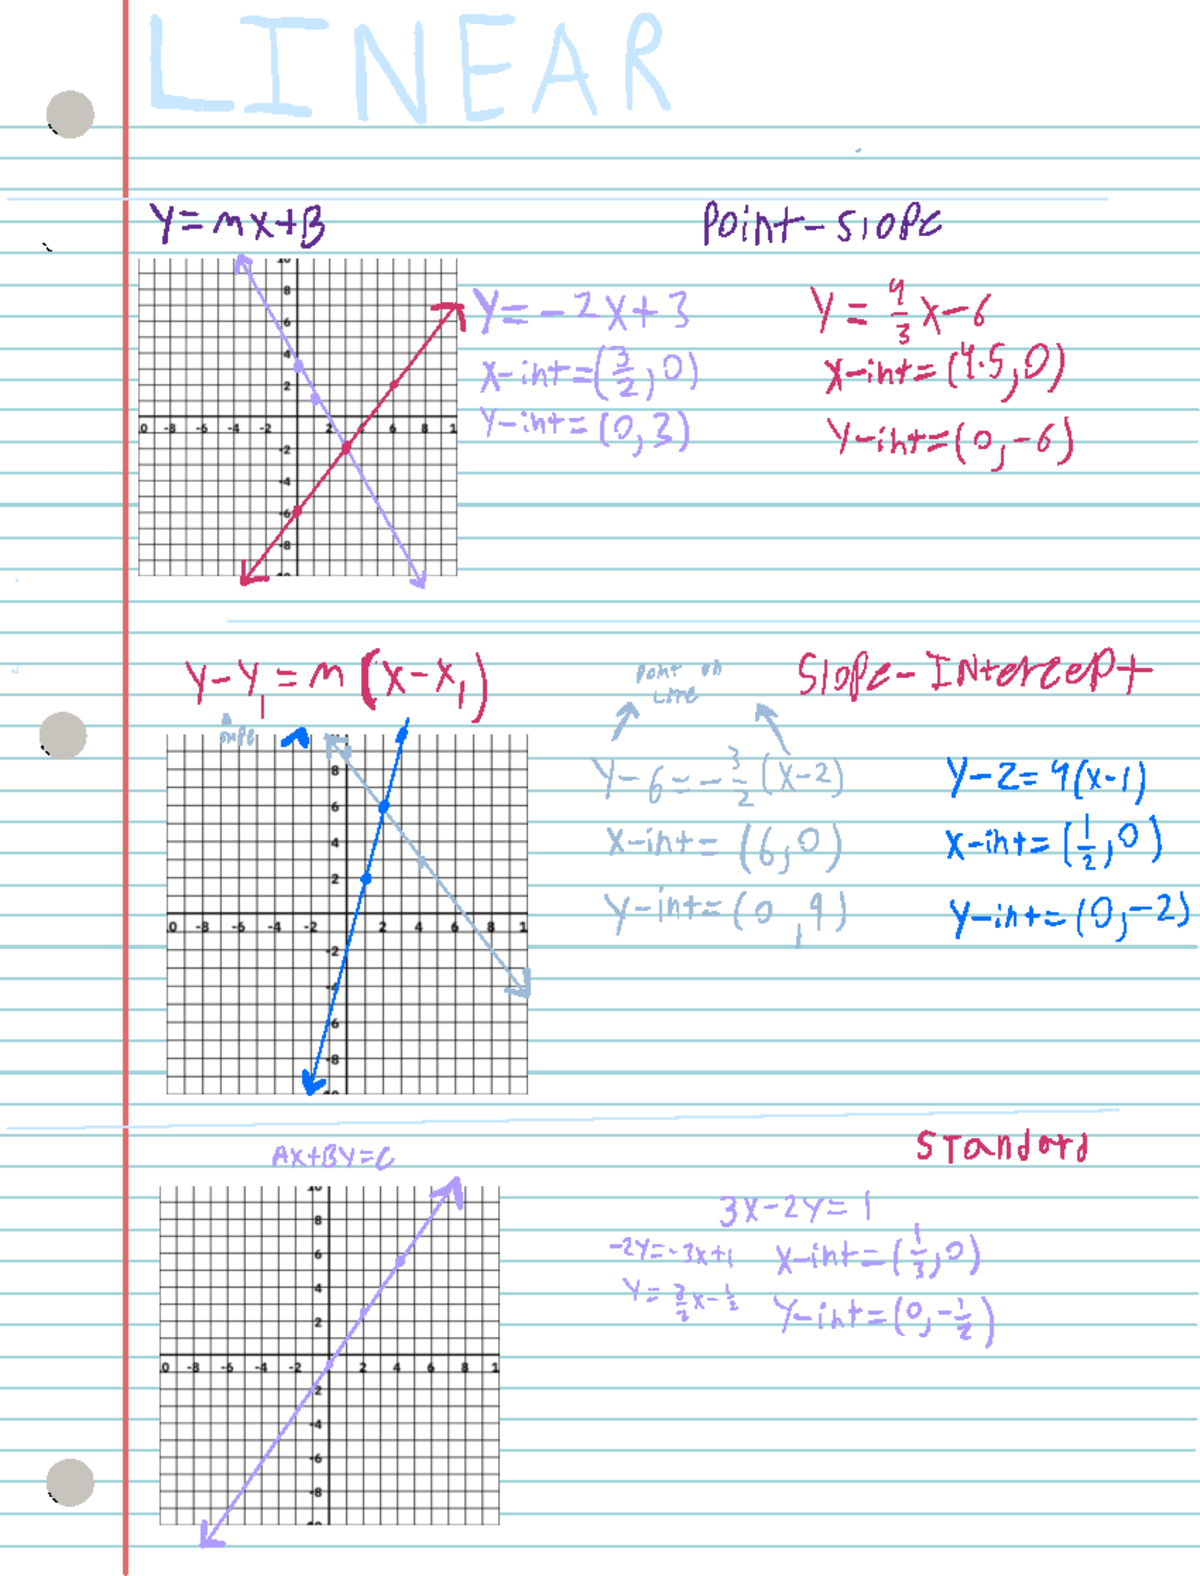 LINEAR
Y=mx+B
Point-Slope
Y=-2x+3
X-int=(3/2,0)
Y-int=(0,3)
Y=4/3x-6
X-int=(4.5,0)
Y-int=(0,-6)
10 8 6 4 2
.0 -8 -6 -4 -2 2 6 8 1
-2 -4 -6 -8 -10
Y-Y₁=m(X-X₁)
Slope-Intercept
Point on
Line
slope
Y-6=-3/2(x-2)
X-int=(6,0)
Y-int=(0,9)
Y-2=4(x-1)
X-int=(1/2,0)
Y-int=(0,-2)
8 6 4 2
.0 -8 -6 -4 -2 2 4 6 8 1
-2 -4 -6 -8 -10
Ax+By=C
Standard
3x-2y=1
-2Y=-3x+1
Y=3/2x-1/2
X-int=(1/3,0)
Y-int=(0,-1/2)
10 8 6 4 2
.0 -8 -6 -4 -2 2 4 6 8 1
-2 -4 -6 -8 -10